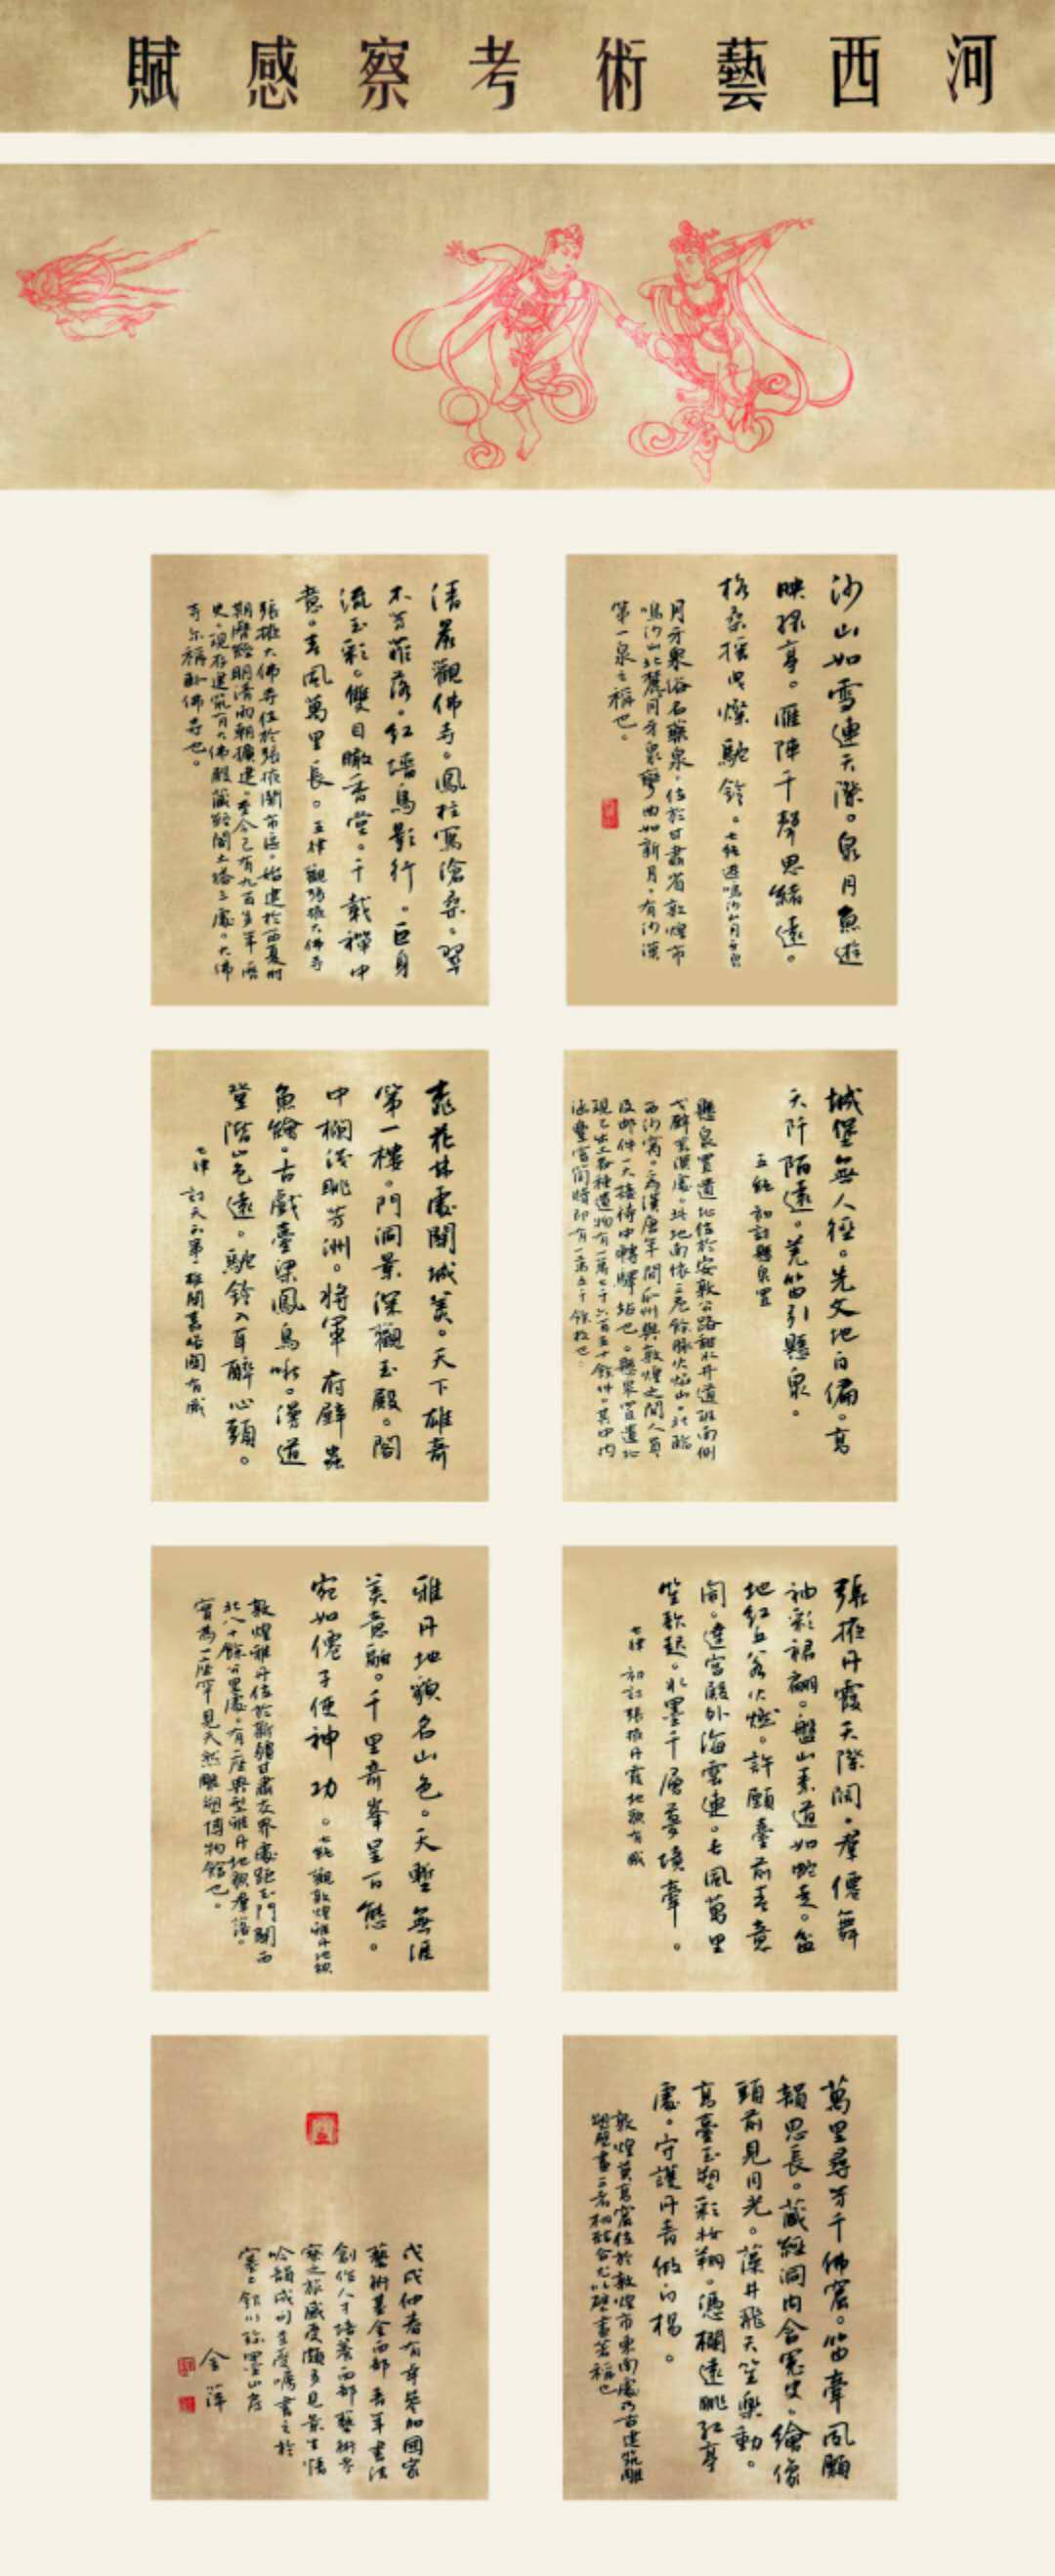 河西藝術考察感賦
沙山如雪連天際。泉月魚遊
映緑亭。雁陣千聲思緒遠。
格桑摇曳燦駝鈴。七絶遊鳴沙山月牙泉
月牙泉俗名藥泉,位於甘肅省敦煌市
鳴沙山北麓月牙泉彎曲如新月。有沙漠
第一泉之稱也。
清晨觀佛寺。鳳柱寫滄桑。翠
木芳菲落。紅墻鳥影行。巨身
流玉彩。雙目瞰香堂。千載禪中
意。春風萬里長。五律 觀張掖大佛寺
張掖大佛寺位於張掖闹市區。始建於西夏時
期歷經明清兩朝擴建。至今已有九百多年歷
史。現存建筑有大佛殿藏經閣土塔三處。大佛
寺亦稱卧佛寺也。
城堡無人徑。先文地自偏。高
天阡陌遠。羌笛引懸泉。
五絶 初訪懸泉置
懸泉置遺址位於安敦公路甜水井道班南側
戈壁荒漠處。其地南依三危餘脉火焰山。北臨
西沙窩。為漢唐年間瓜州與敦煌之間人員
及郵件一大接待中轉驛站也。懸泉置遺址
現已出土各種遺物有一萬七千六百五十餘件。其中内
涵豐富簡牘即有一萬五千餘枚也。
桃花林處関城美。天下雄奇
第一樓。門洞景深觀玉殿。閣
中欄淺眺芳洲。將軍府壁蟲
魚繪。古戲臺梁鳳鳥啾。漫道
登階山色遠。駝鈴入耳醉心頭。
七律 訪天下第一雄関嘉峪関有感
張掖丹霞天際闊。羣僊舞
袖彩裙翩。盤山素道如蛇走。笛
地紅丘若火燃。許願臺前春意
間。達宫殿外海雲連。长風萬里
笙歌起。水墨千層夢境牽。
七律 初訪張掖丹霞地貌有感
雅丹地貌名山色。天塹無涯
美意融。千里奇峯呈百態。
宛如僊子使神功。七絶 觀敦煌雅丹地貌
敦煌雅丹位於新疆甘肅交界處距玉門関西
北八十餘公里處。有一座典型雅丹地貌羣落。
實為一座罕見天然雕塑博物館也。
萬里尋芳千佛窟。笛牽風願
韻思長。藏經洞内含冤史。繪像
頭前見月光。藻井飛天笙樂動。
高臺玉塑彩妝翔。憑欄遠眺紅亭
處。守護丹青傲白楊。
敦煌莫高窟位於敦煌市東南處乃古建筑雕
塑壁畫三者相結合尤以壁畫著稱也
戊戌仲春有幸參加國家
藝術基金西部青年書法
創作人才培養西部藝術考
察之旅感受頗多見景生情
吟韻成句並受囑書之於
塞上銀川臨墨山房
金萍